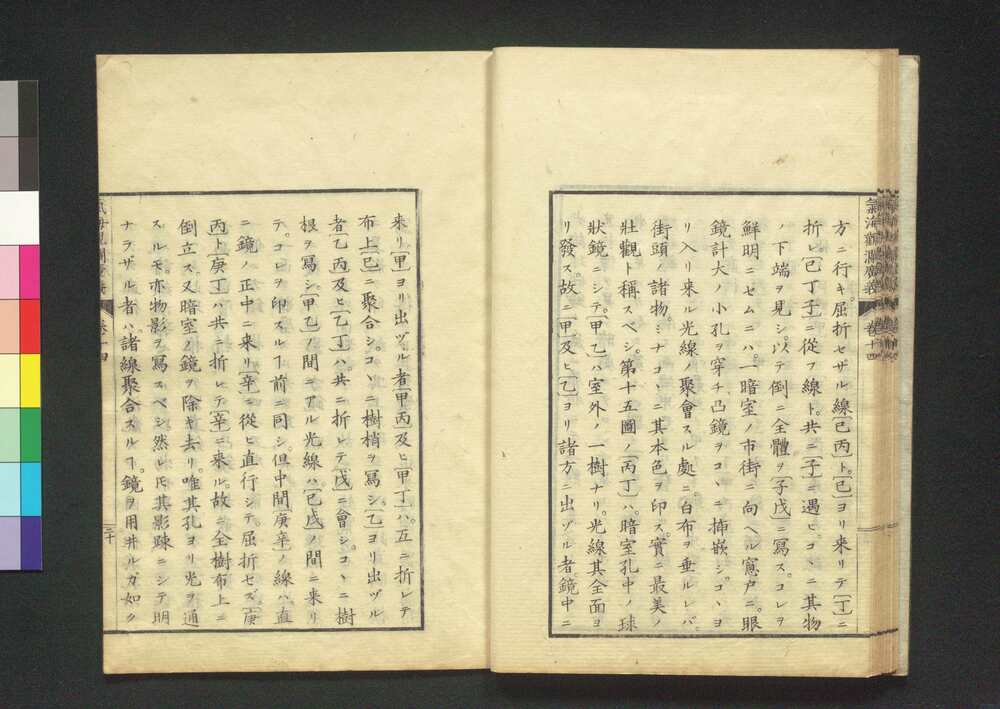 氣海觀瀾廣義 卷十四
方ニ行キ屈折セザル線[己丙]ト。[己]ヨリ来リテ[丁]ニ
折レ[己丁子]ニ從フ線ト。共ニ[子]ニ遇ヒ。コヽニ其物
ノ下端ヲ見シ。以テ倒ニ全體ヲ[子戊]ニ寫ス。コレヲ
鮮明ニセムニハ。一暗室ノ市街ニ向ヘル窓戸ニ。眼
鏡計大ノ小孔ヲ穿チ。凸鏡ヲコヽニ挿嵌シ。コヽヨ
リ入リ来ル光線ノ聚會スル處ニ。白布ヲ垂ルレバ。
街頭ノ諸物。ミナコヽニ其本色ヲ印ス。實ニ最美ノ
壯觀ト稱スベシ。第十五圖ノ[丙丁]ハ。暗室孔中ノ球
狀鏡ニシテ。[甲乙]ハ室外ノ一樹ナリ。光線其全面ヨ
リ發ス。故ニ[甲]及ヒ[乙]ヨリ諸方ニ出ヅル者鏡中ニ
来リ[甲]ヨリ出ヅル者[甲丙]及ヒ[甲丁]ハ。互ニ折レテ
布上[己]ニ聚合シ。コヽニ樹梢ヲ寫シ。[乙]ヨリ出ヅル
者[乙丙]及ヒ[乙丁]ハ。共ニ折レテ[戊]ニ會シ。コヽニ樹
根ヲ寫シ[甲乙]ノ間ニアル光線ハ[己戊]ノ間ニ来リ
テ。コレヲ印スルヿ前ニ同シ。但中間[庚辛]ノ線ハ直
ニ鏡ノ正中ニ来リ[辛]ニ從ヒ直行シテ。屈折セズ[庚
丙]ト[庚丁]ハ共ニ折レテ[辛]ニ来ル。故ニ全樹布上ニ
倒立ス。又暗室ノ鏡ヲ除キ去リ。唯其孔ヨリ光ヲ通
スルモ。亦物影ヲ寫スベシ然レ𪜈其影踈ニシテ明
ナラザル者ハ諸線聚合スルヿ。鏡ヲ用井ルガ如ク
卷十四
二十